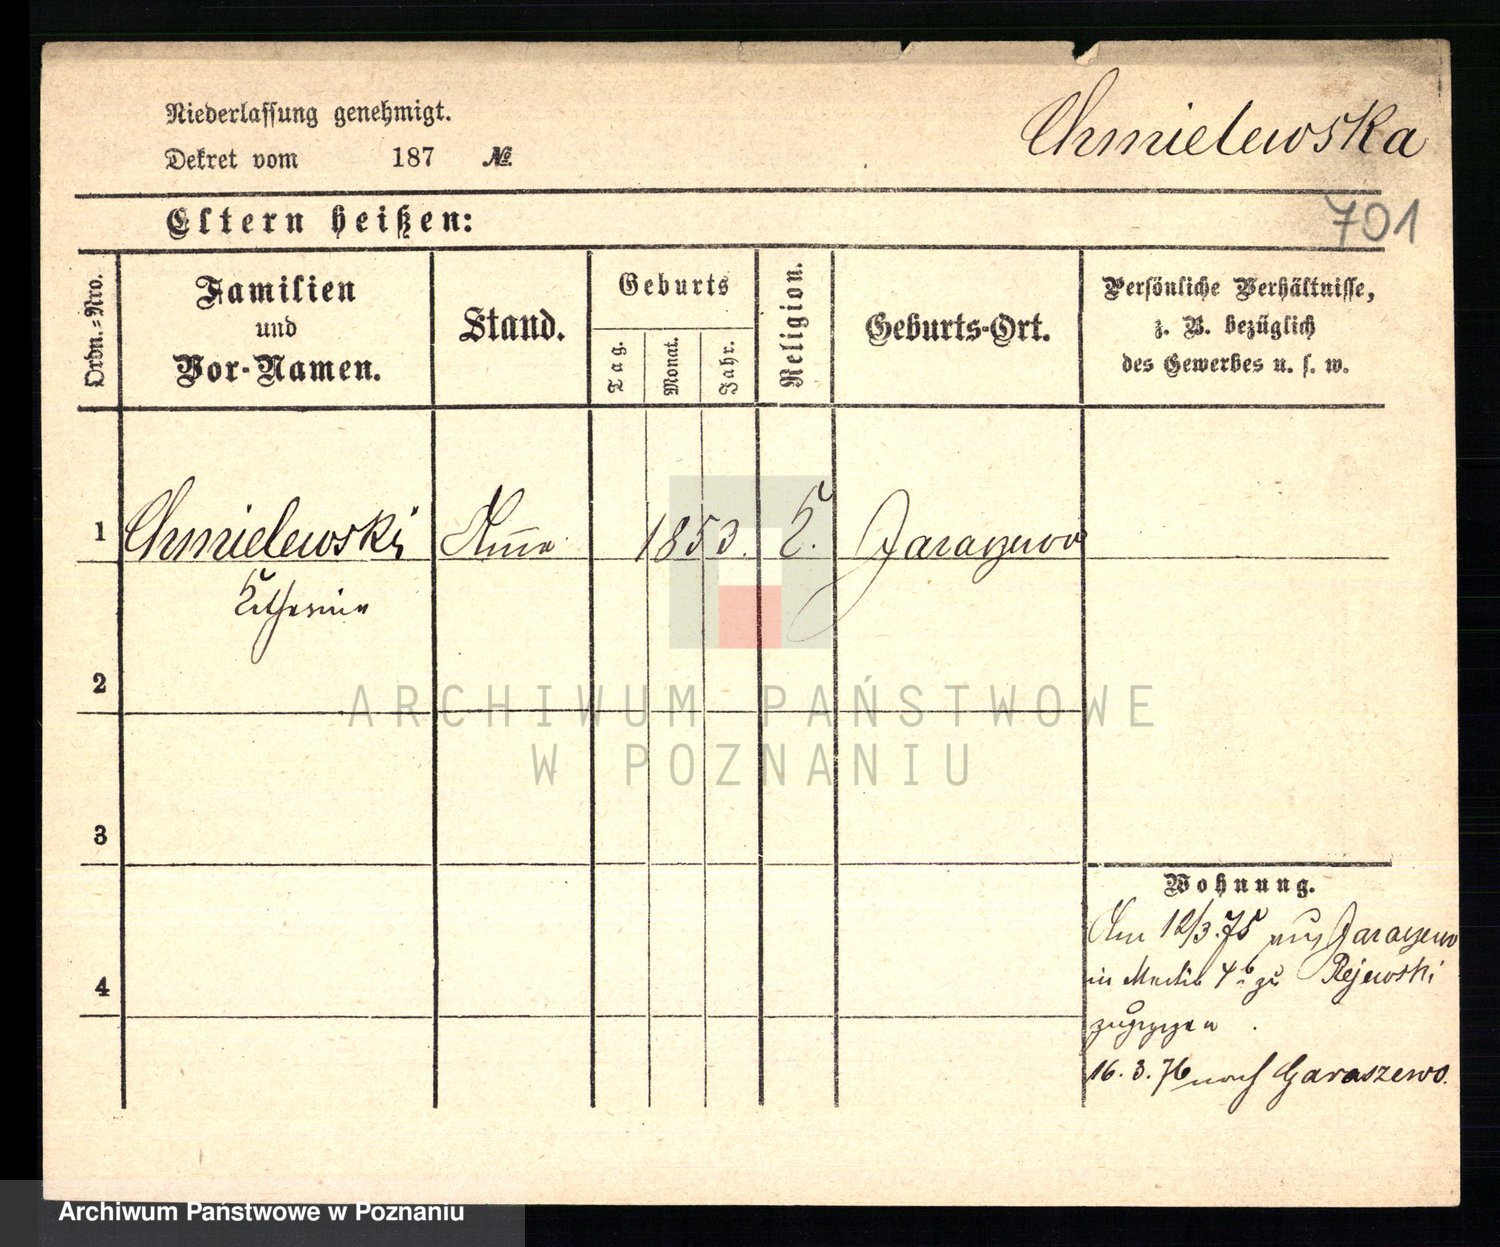 Niederlassung genehmigt.
Dekret vom 187 №.
Chmielewska
701
Eltern heißen:
Ordn.=Nro.
Familien
und
Vor-Namen.
Stand.
Geburts
Tag.
Monat.
Jahr.
Religion.
Geburts-Ort.
Persönliche Verhältnisse,
z. B. bezüglich
des Gewerbes u. s. w.
1
Chmielewski,
1853.
K.
Katharina
2
ARCHIWUM PAŃSTWOWE
W POZNANIU
3
Wohnung.
Am 12/3. 75 aus
4
in 4 b zu Rejewski
zugezogen.
16. 3. 76 nach Garaszewo.
Archiwum Państwowe w Poznaniu